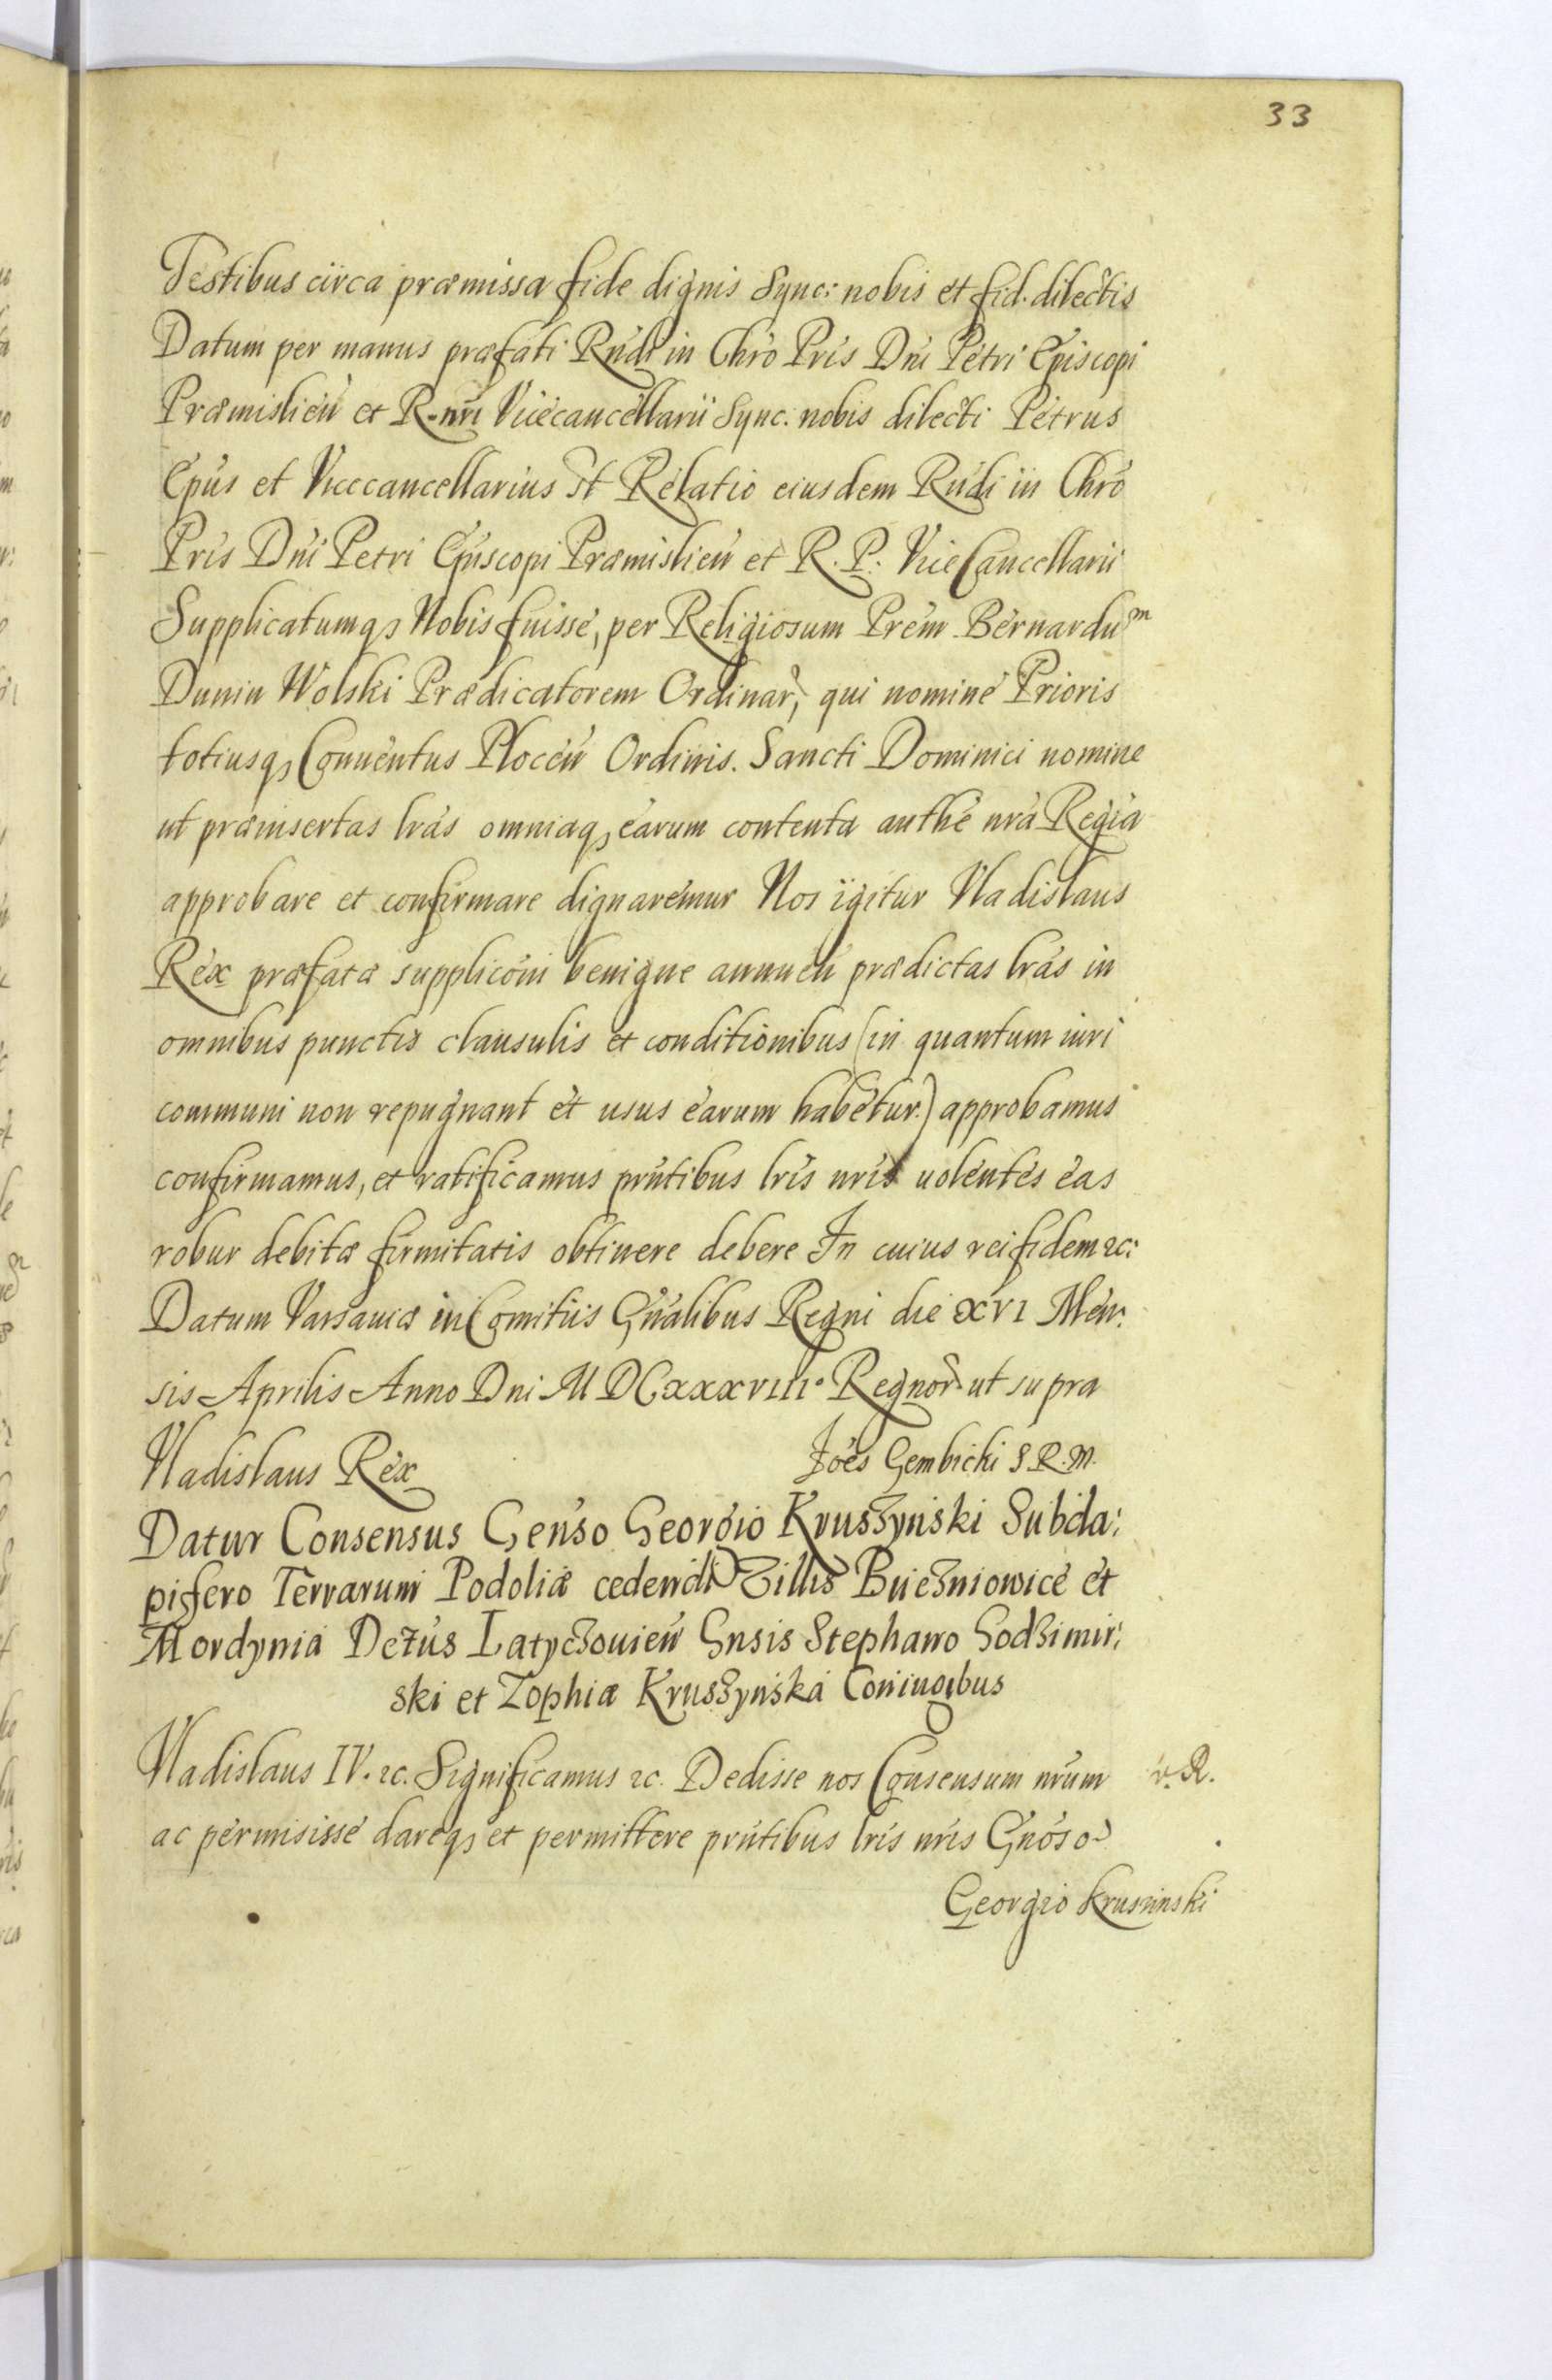 33
Testibus circa præmissa fide dignis Sync: nobis et fid. dilectis
Datum per manus præfati Rñdi in Chro Pris Dni Petri Episcopi
Præmislien et R. nri Vicecancellarii Sync. nobis dilecti Petrus
Epus et Vicecancellarius Relatio eiusdem Rñdi in Chro
Pris Dni Petri Episcopi Præmislien et R. P. Vice Cancellarii
Supplicatumq3 Nobis fuisse, per Religiosum Prem Bernardum
Dunin Wolski Prædicatorem Ordinar, qui nomine Prioris
totiusq3 Conuentus Plocen Ordinis. Sancti Dominici nomine
ut præinsertas lras omniaq3 earum contenta authe nra Regia
approbare et confirmare dignaremur Nos igitur Vladislaus
Rex præfatæ supplicõni benigne annuen prædictas lras in
omnibus punctis clausulis et conditionibus (in quantum iuri
communi non repugnant et usus earum habetur.) approbamus
confirmamus, et ratificamus pñtibus lris nris uolentes eas
robur debitæ firmitatis obtinere debere In cuius rei fidem &c:
Datum Varsauiæ in Comitiis Gñalibus Regni die XVI Men:
sis Aprilis Anno Dni M DCxxxVIII° Regnor ut supra
Vladislaus Rex Joẽs Gembicki S. R. M.
Datur Consensus Genso Georgio Kruszynski Subda:
pifero Terrarum Podoliæ cedendi Villis Bueżniowice et
Mordynia Deżus Latyczouien Gnsis Stephano Godzimir:
ski et Zophiæ Kruszynska Coniugibus
Vladislaus IV. &c. Significamus &c. Dedisse nos Consensum nrum v. R.
ac permisisse dareq3 et permittere pñtibus lris nris Gnõso
Georgio Kruszinski